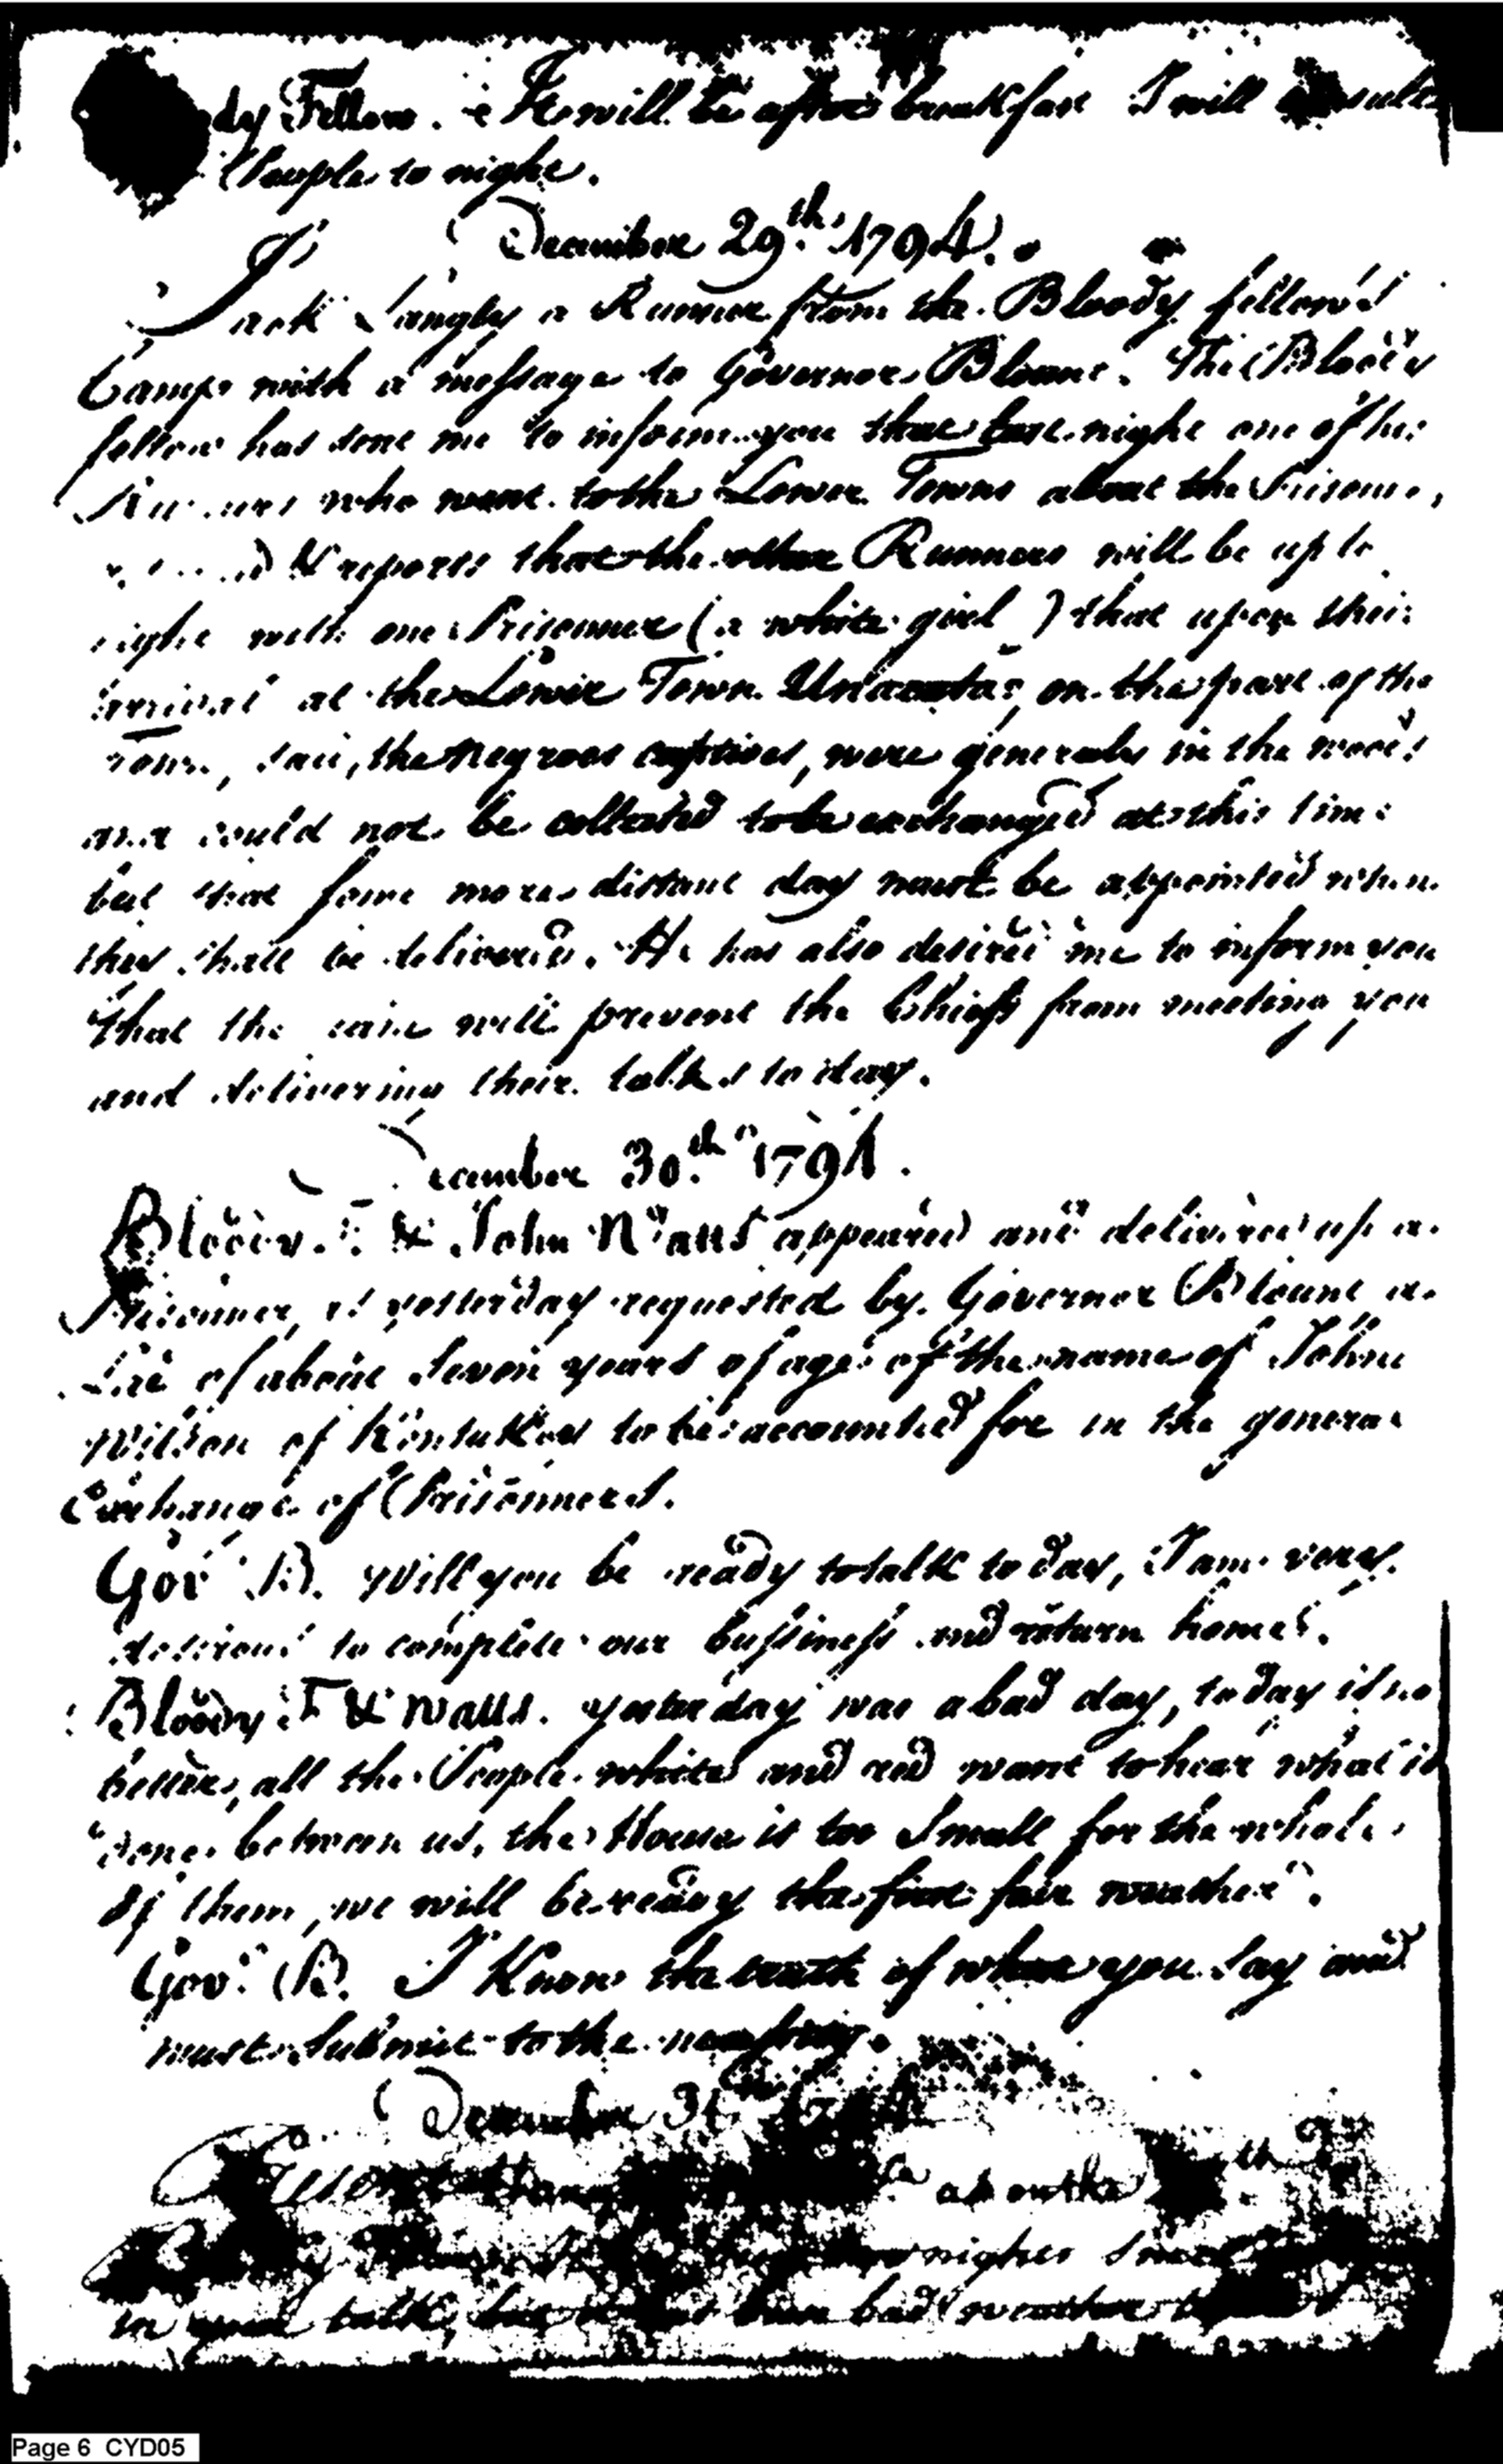 dy Fellow. It will be after breakfast I will consult
People to night.
December 29th. 1794.
Jack Langley a Runner from the Bloody fellow's
Camp with a message to Governor Blount. The Bloody
fellow has sent me to inform you that last night one of his
Runners who went to the Lower Towns about the Prisoners,
& reports that the other Runners will be up to
night with one Prisonner (a white girl) that upon their
arrival at the Lower Town Unacata, on the part of the
Town, said, the Negroes captives, were generaly in the woods
and could not be collected to be exchanged at this time
but that some more distant day must be appointed when
they shall be delivered. He has also desired me to inform you
that the rain will prevent the Chiefs from meeting you
and delivering their talks to day.
December 30th. 1794.
Bloody F. & John Watts appeared and delivered up a
Prisonner, as yesterday requested by Governor Blount a
Lad of about Seven years of age of the name of John
Wilson of Kentuckey to be accounted for in the general
Exchange of Prisonners.
Gov. B. Will you be ready to talk to day, I am very
desirous to complete our bussiness and return home.
Bloody F & Watts. Yesterday was a bad day, today is no
better, all the People white and red want to hear what is
done between us, the House is too Small for the whole
of them, we will be ready the first fair weather.
Gov. B. I Know the truth of what you Say and
must Submit to the necessity.
December 31st. 1794
as on the
nights Since
in talk, but bad weather
Page 6 CYD05